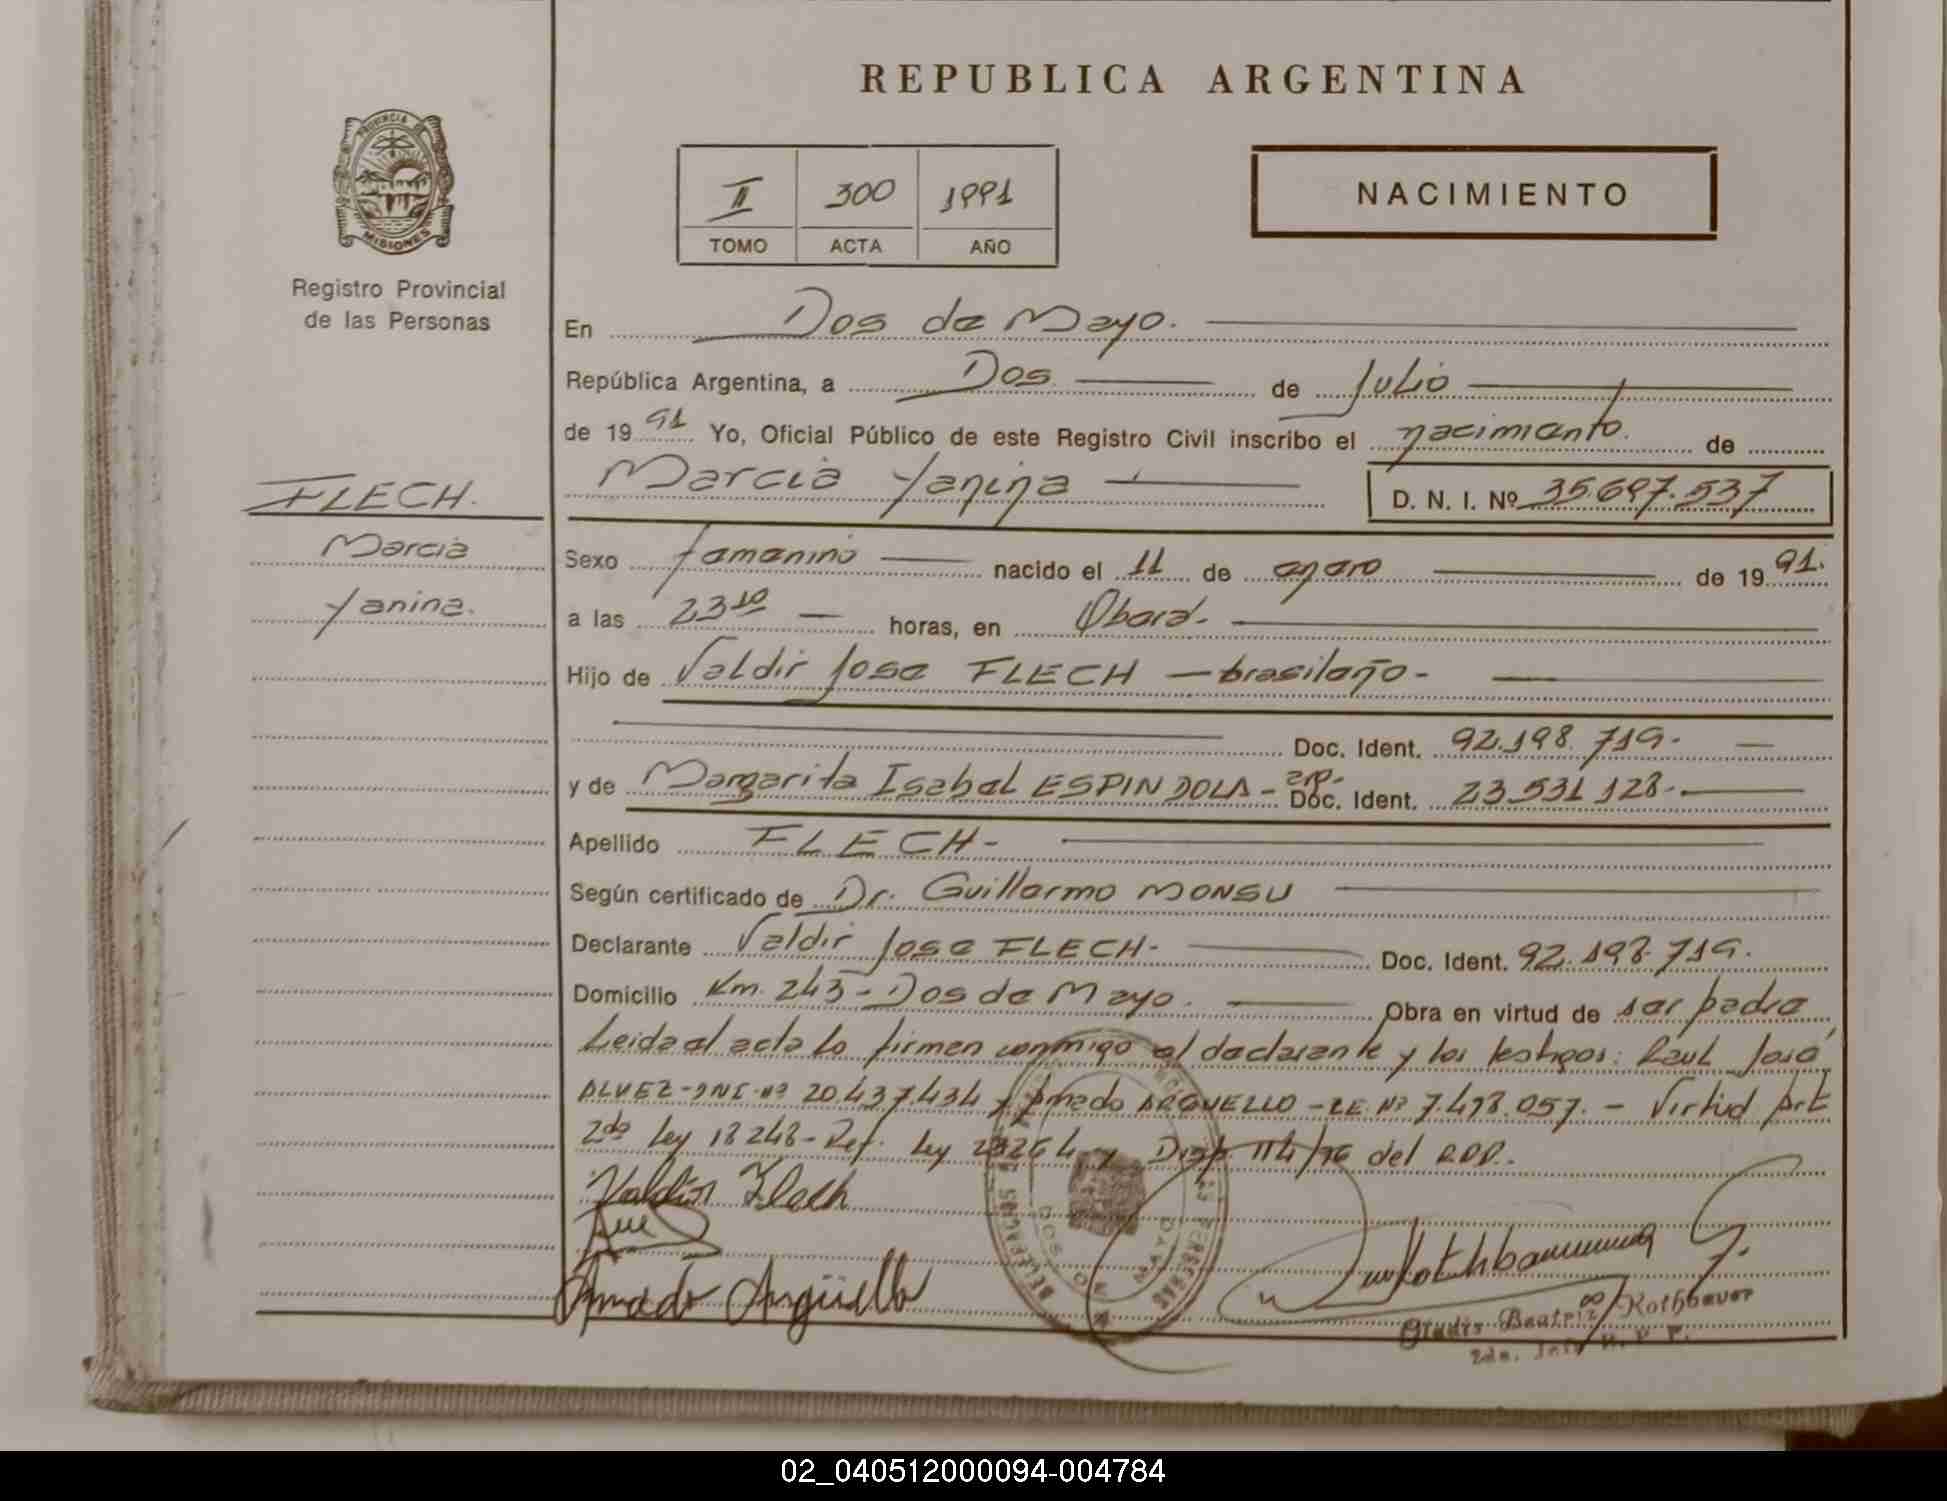 REPUBLICA ARGENTINA
PROVINCIA DE
MISIONES
Registro Provincial
de las Personas
II 300 1991
TOMO ACTA AÑO
NACIMIENTO
En Dos de Mayo.
República Argentina, a Dos de Julio
de 1991 Yo, Oficial Público de este Registro Civil inscribo el nacimiento. de
Marcia Yanina D. N. I. Nº 35.697.537
FLECH.
Marcia
Yanina.
Sexo famanino nacido el 11 de enero de 1991.
a las 23 10 horas, en Oberá.
Hijo de Valdir Jose FLECH - brasileño -
Doc. Ident. 92.198.719.
y de Margarita Isabel ESPINDOLA - arg. Doc. Ident. 23.531.128.
Apellido FLECH -
Según certificado de Dr. Guillermo MONSU
Declarante Valdir Jose FLECH - Doc. Ident. 92.198.719.
Domicilio Km. 243 - Dos de Mayo. Obra en virtud de ser padre
Leida el acta lo firman conmigo el declarante y los testigos: Raul José
ALVEZ - DNI. Nº 20.437.434 y Amado ARGUELLO - LE. Nº 7.478.057. - Virtud Art
2do Ley 18248 - Ref. Ley 23264 y Disp. 114/76 del RPP.
Valdir Flech
Amado Argüello
DOS DE MAYO
Gladis Beatriz Rothbauer
02_040512000094-004784